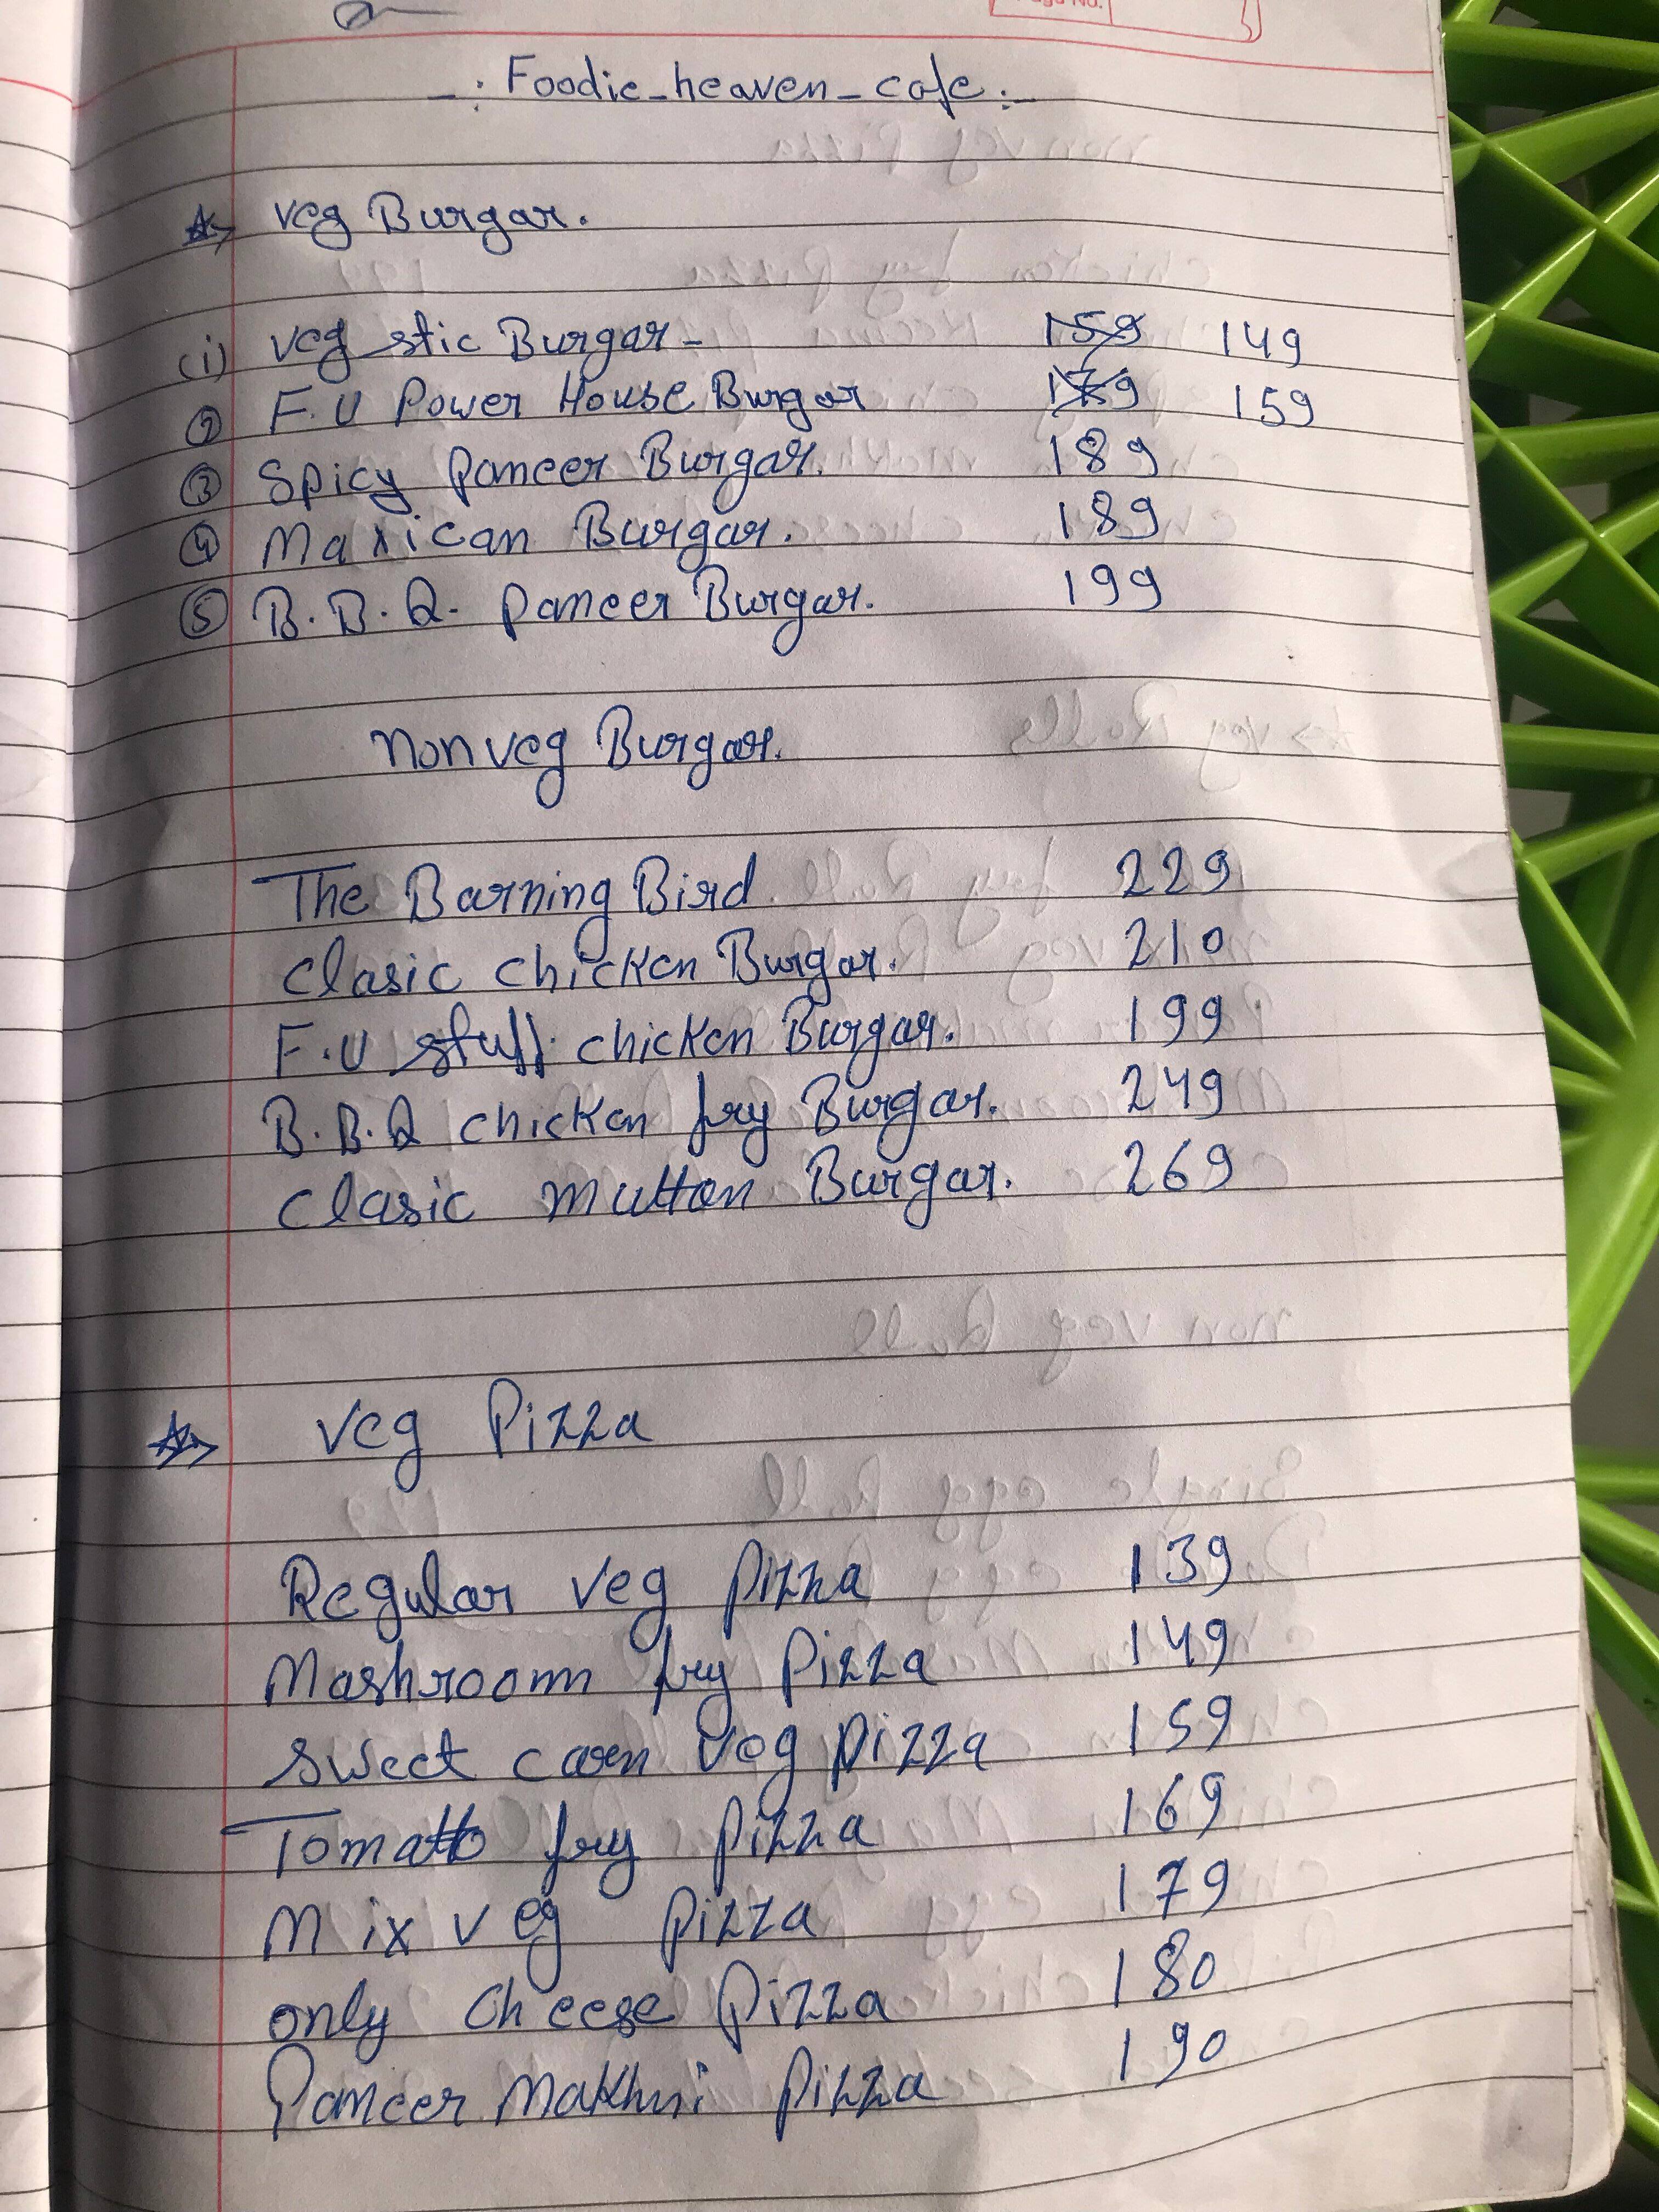 -: Foodie_heaven_cafe :-
veg Burgar.
(i) veg stic Burgar - 159 149
② F.U Power House Burgar 179 159
③ Spicy Paneer Burgar. 189
④ Maxican Burgar. 189
⑤ B.B.Q. Paneer Burgar. 199
Non veg Burgar.
The Barning Bird 229
Clasic chicken Burgar. 210
F.U stuff chicken Burgar. 199
B.B.Q chicken fry Burgar. 249
Clasic mutton Burgar. 269
Veg Pizza
Regular veg Pizza 139
Mashroom fry Pizza 149
Sweet corn veg Pizza 159
Tomatto fry Pizza 169
Mix veg Pizza 179
only Cheese Pizza 180
Paneer Makhni Pizza 190